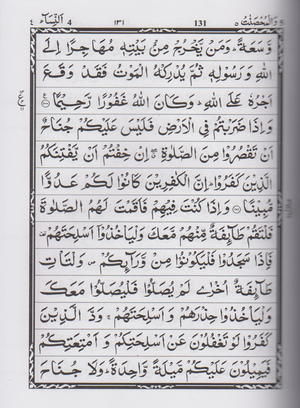 النسآء ٤ 4 ١٣١ 131 والمحصنت ٥ 5
وَّسَعَةً ؕ وَمَنْ يَّخْرُجْ مِنْۢ بَيْتِهٖ مُهَاجِرًا اِلَى
اللّٰهِ وَرَسُوْلِهٖ ثُمَّ يُدْرِكْهُ الْمَوْتُ فَقَدْ وَقَعَ
اَجْرُهٗ عَلَى اللّٰهِ ؕ وَكَانَ اللّٰهُ غَفُوْرًا رَّحِيْمًا
وَاِذَا ضَرَبْتُمْ فِى الْاَرْضِ فَلَيْسَ عَلَيْكُمْ جُنَاحٌ
اَنْ تَقْصُرُوْا مِنَ الصَّلٰوةِ ۖ اِنْ خِفْتُمْ اَنْ يَّفْتِنَكُمُ
الَّذِيْنَ كَفَرُوْا ؕ اِنَّ الْكٰفِرِيْنَ كَانُوْا لَكُمْ عَدُوًّا
مُّبِيْنًا وَاِذَا كُنْتَ فِيْهِمْ فَاَقَمْتَ لَهُمُ الصَّلٰوةَ
فَلْتَقُمْ طَآئِفَةٌ مِّنْهُمْ مَّعَكَ وَلْيَاْخُذُوْۤا اَسْلِحَتَهُمْ
فَاِذَا سَجَدُوْا فَلْيَكُوْنُوْا مِنْ وَّرَآئِكُمْ وَلْتَاْتِ
طَآئِفَةٌ اُخْرٰى لَمْ يُصَلُّوْا فَلْيُصَلُّوْا مَعَكَ
وَلْيَاْخُذُوْا حِذْرَهُمْ وَاَسْلِحَتَهُمْ ۚ وَدَّ الَّذِيْنَ
كَفَرُوْا لَوْ تَغْفُلُوْنَ عَنْ اَسْلِحَتِكُمْ وَاَمْتِعَتِكُمْ
فَيَمِيْلُوْنَ عَلَيْكُمْ مَّيْلَةً وَّاحِدَةً ؕ وَلَا جُنَاحَ